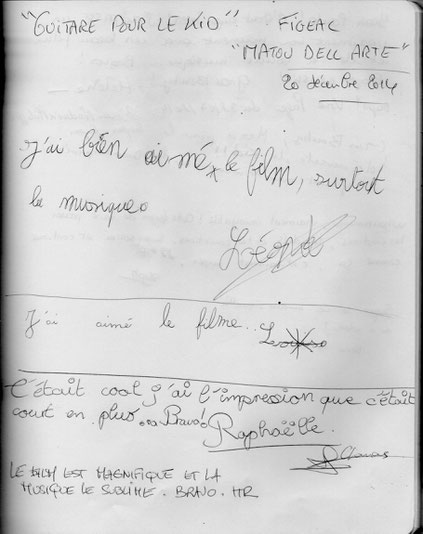 "GUITARE POUR LE KID" FIGEAC
"MATOU DELL ARTE"
20 décembre 2014
J'ai bien aimé le film, surtout
la musique.
Léopold
J'ai aimé le filme..
C'était cool j'ai l'impression que c'était
court en plus... Bravo!
Raphaëlle.
LE FILM EST MAGNIFIQUE ET LA
MUSIQUE LE SUBLIME. BRAVO. MR